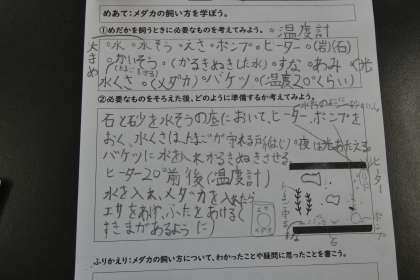 めあて:メダカの飼い方を学ぼう。
①めだかを飼うときに必要なものを考えてみよう。
○温度計
大きめ
○水 ○水そう ○えさ ○ポンプ ○ヒーター ○(岩)(石)
(かるきぬきした水) ○すな ○あみ
水くさ (メダカ) ○バケツ (温度20°くらい)
②必要なものをそろえた後、どのように準備するか考えてみよう。
石と砂を水そうの底において、ヒーター、ポンプを
おく、水くさは
夜は光あたえる
バケツに水を入れかるきぬきさせる
ヒーター20°前後(温度計)
水を入れ、メダカを入れたら
エサをあげ、ふたをあける(
すきまがあるように)
ヒーター
ポンプ
石
ふりかえり:メダカの飼い方について、わかったことや疑問に思ったことを書こう。